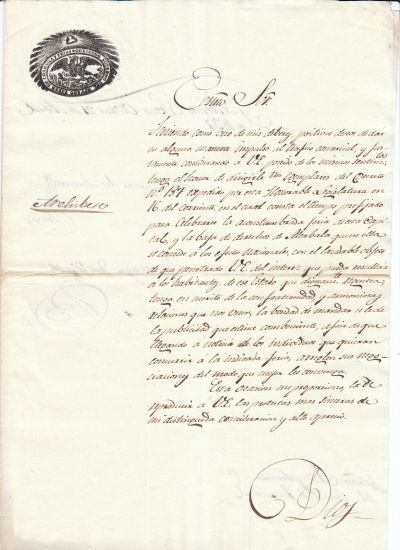 Exmo. Sr.
Mirando como uno de mis deberes positivos deseos de dar
en alguna manera impulso al trafico comercial, y jus-
tamente considerando á V.E. poseido de los mismos sentim.tos
tengo el honor de dirigirle un Exemplares del Decreto
N.º 157 expedido por esta Honorable Legislatura en
16 del corriente, en el cual consta el tiempo prefijado
para Celebrarse la acostumbrada feria de esta Capi-
tal, y la baja de derechos de Alcabala que en ella
se concede á los efectos Nacionales, con el laudable objeto
de que penetrado V.E. del interes que pueda resultar
á los habitantes de ese Estado que dignam.te
tenga en merito de la conformidad y armoniosas
relaciones que nos unen, la bondad de mandar se le dé
la publicidad que estime combeniente, á fin de que
llegando á noticia de los individuos que quieran
concurrir á la indicada feria, arreglen sus nego-
ciaciones del modo que mejor les convenga.
Esta Ocacion me proporciona la de
reproducir á V.E. las protestas mas sinceras de
mi distinguida consideracion y alto aprecio.
Archibese
Dios